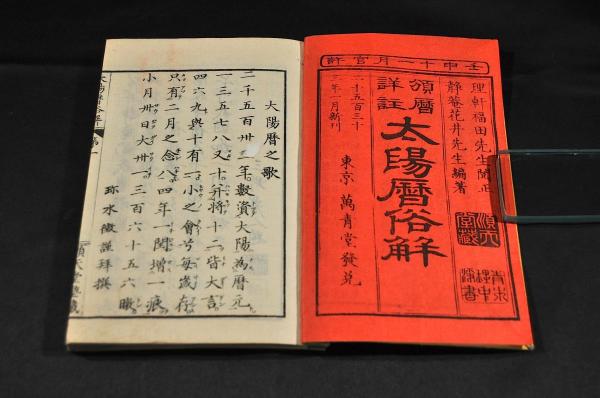 壬申十一月官許
理軒福田先生閲正
静菴花井先生編著
頒暦
詳註
太陽暦俗解
二千五百三十
三年一月新刊
東京 萬青堂發兌
大陽暦之歌
二千五百卅二年數資大陽為暦元
一三五七八又十并将十二皆大言
四六九與十有一小之會兮每歳存
只有二月之念八四年一閏増一痕
小月卅日大卅一三百六十五六暾
珎水徹謹拜撰